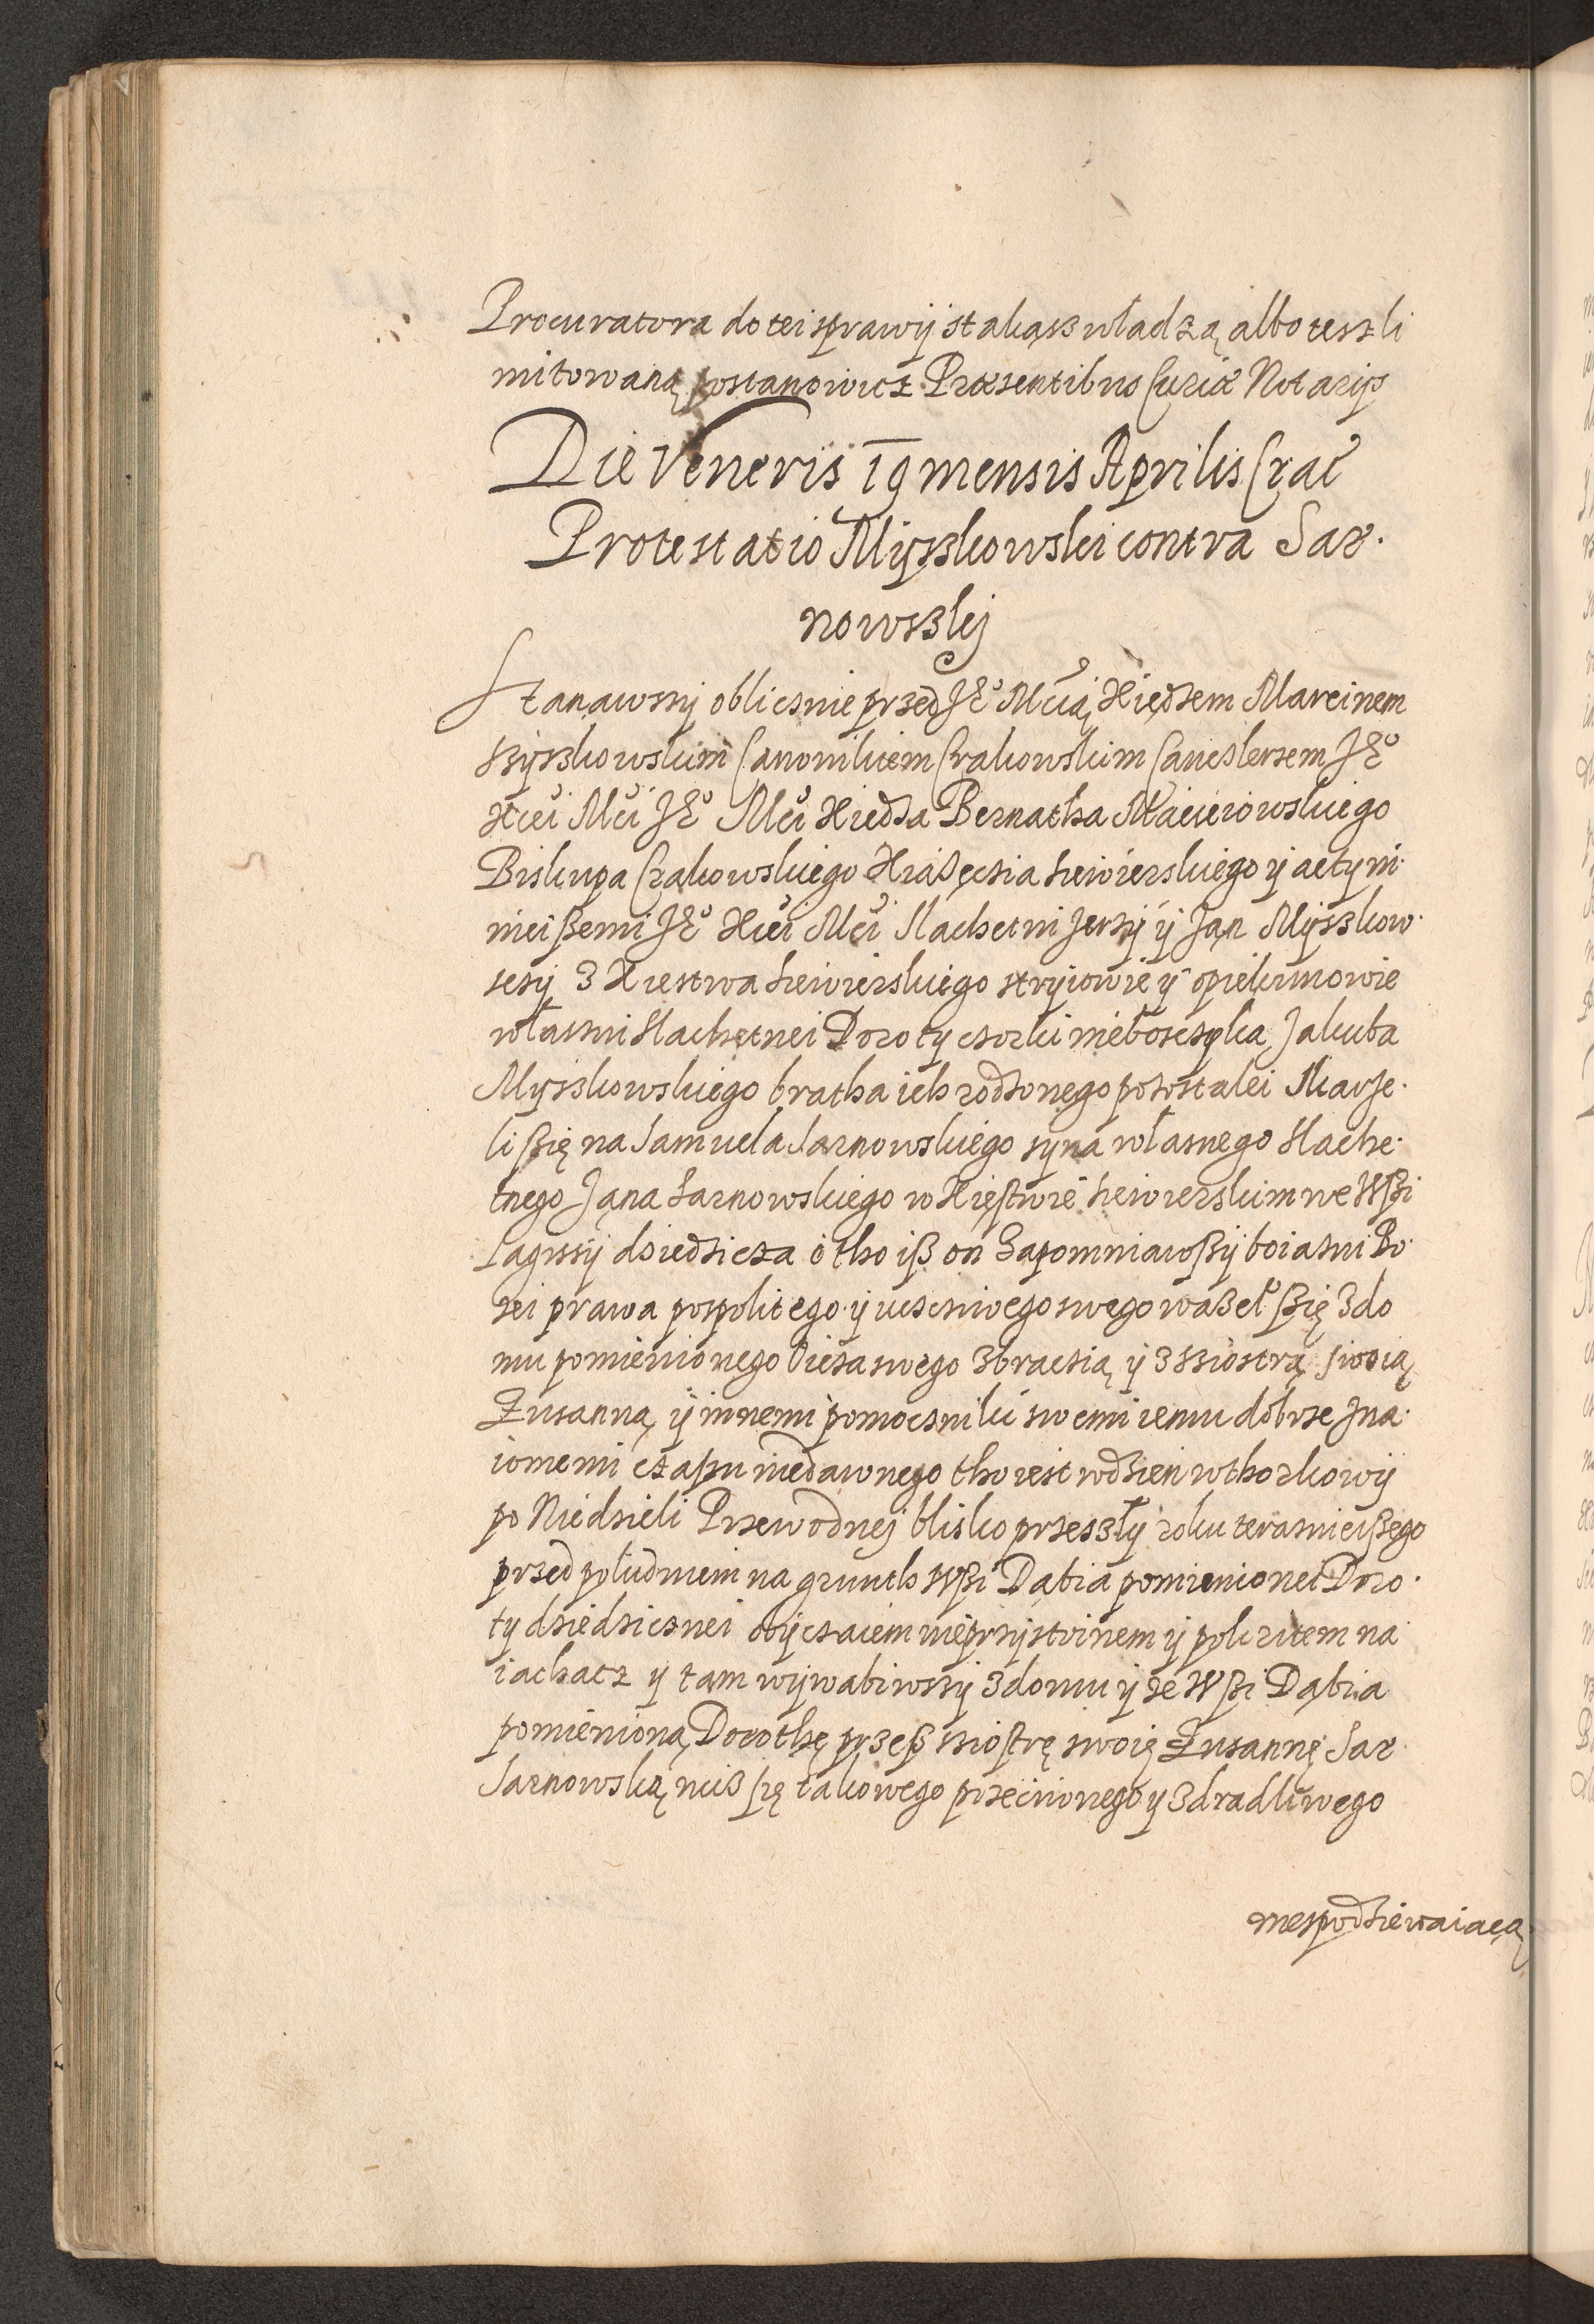 Procuratora do tei sprawÿ s takąsz władzą albo tesz li
mitowaną postanowicz Præsentibus Curiæ Notarÿs
Die Veneris 19 mensis Aprilis Crac
Protestatio Mÿszkowski contra Sar·
nowszkj
Stanąwssÿ oblicznie przed Jeº Mcią Xiędzem Marcinem
Szÿszkowskim Canonikiem Crakowskim Canclerzem Jeº
Xcei Mci Jeº Mci Xiedza Bernatha Maciejowskiego
Biskupa Crakowskiego Xiąszęcia Siewierskiego ÿ actÿ ni·
nieißemi Jeº Xcei Mci slachetni Jerzÿ ÿ Jąn Mÿszkow·
scsÿ z Xiestwa Siewierskiego strÿiowie ÿ opiekunowie
własni slachetnei Dorotÿ czorki niebosczÿka Jakuba
Mÿszkowskiego bratha ich rodzonego pozostałei skarże·
li ßię na Samuela Sarnowskiego sÿna własnego slache·
tnego Jąna Sarnowskiego w Xięstwie Siewierskim we Wßi
Łagissÿ dziedzicza o tho iß on zapomniawßÿ boiazni Bo·
zei prawa pospolitego ÿ ucsciwego swego wazeł ßię z do
mu pomienionego Oicza swego z bracsią ÿ z ssiostrą swoią
Zusanną ÿ innemi pomocsniki swemi iemu dobrze zna·
iomemi czasu niedawnego tho iest w dzień wthorkowÿ
po Niedzieli Przewodnej blisko przeszłÿ roku terasnieißego
przed południem na grunth Wßi Dąbia pomienionei Doro·
tÿ dziedzicznei obÿczaiem nieprzÿstoinem ÿ pokritem na
iachacz ÿ tam wÿwabiwssÿ z domu ÿ ze Wßi Dąbia
pomienioną Dorothę przeß ssiostrę swoię Zusannę Sar
Sarnowską nicz się takowego przeciwnego ÿ zdradliwego
niespodziewaiącą